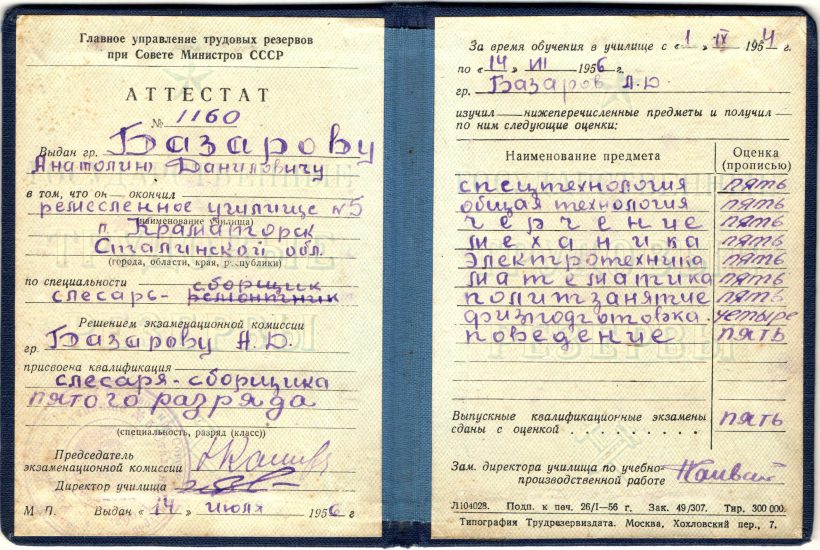 Главное управление трудовых резервов
при Совете Министров СССР
АТТЕСТАТ
№ 1160
Выдан гр. Базарову
Анатолию Даниловичу
в том, что он — окончил
ремесленное училище №5
(наименование училища)
г. Краматорск
Сталинской обл.
(города, области, края, республики)
по специальности сборщик
слесарь- ремонтник
Решением экзаменационной комиссии
гр. Базарову А.Д.
присвоена квалификация
слесаря-сборщика
пятого разряда
(специальность, разряд (класс))
Председатель
экзаменационной комиссии
Директор училища
М П. Выдан «14» июля 1956 г.
За время обучения в училище с «1» IX 1954 г.
по «14» VII 1956 г.
гр. Базаров А.Д.
изучил — нижеперечисленные предметы и получил —
по ним следующие оценки:
Наименование предмета Оценка (прописью)
спецтехнология пять
общая технология пять
черчение пять
механика пять
электротехника пять
математика пять
политзанятие пять
физподготовка. четыре
поведение пять
Выпускные квалификационные экзамены
сданы с оценкой . . . . . . . . . пять
Зам. директора училища по учебно-
производственной работе
Л104028. Подп. к печ. 26/I—56 г. Зак. 49/307. Тир. 300 000.
Типография Трудрезервиздата. Москва, Хохловский пер., 7.